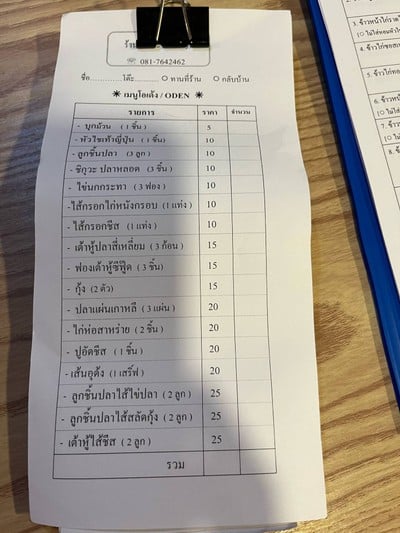 ร้าน
☏ 081-7642462
ชื่อ..............โต๊ะ............ ○ ทานที่ร้าน ○ กลับบ้าน
✳ เมนูโอเด้ง / ODEN ✳
รายการ ราคา จำนวน
- บุกม้วน (1 ชิ้น) 5
- หัวไชเท้าญี่ปุ่น (1 ชิ้น) 10
- ลูกชิ้นปลา (3 ลูก) 10
- ชิกูวะ ปลาหลอด (3 ชิ้น) 10
- ไข่นกกระทา (3 ฟอง) 10
-ไส้กรอกไก่หนังกรอบ (1 แท่ง) 10
- ไส้กรอกชีส (1 แท่ง) 10
- เต้าหู้ปลาสี่เหลี่ยม (3 ก้อน) 15
- ฟองเต้าหู้ซีฟู๊ด (3 ชิ้น) 15
- กุ้ง (2 ตัว) 15
- ปลาแผ่นเกาหลี (3 แผ่น) 20
- ไก่ห่อสาหร่าย (2 ชิ้น) 20
- ปูอัดชีส (1 ชิ้น) 20
-เส้นอุด้ง (1 เสริ์ฟ) 20
- ลูกชิ้นปลาไส้ไข่ปลา (2 ลูก) 25
- ลูกชิ้นปลาไส้สลัดกุ้ง (2 ลูก) 25
- เต้าหู้ไส้ชีส (2 ลูก) 25
รวม
3. ข้าวหน้าไก่
4. ข้าวไก่ซอส
5. ข้าวไก่
6. ข้าว
7. ข้าว
8.